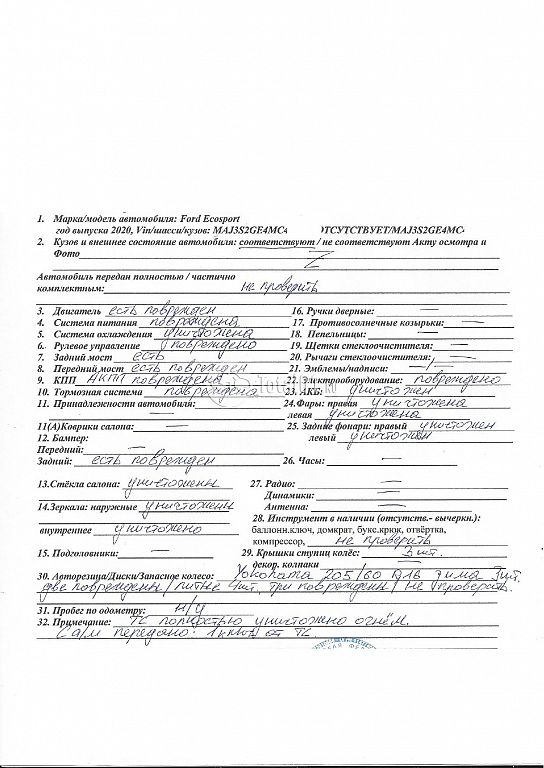 1. Марка/модель автомобиля: Ford Ecosport
год выпуска 2020, Vin/шасси/кузов: MAJ3S2GE4MC ОТСУТСТВУЕТ/MAJ3S2GE4MC
2. Кузов и внешнее состояние автомобиля: соответствуют / не соответствуют Акту осмотра и
Фото
Автомобиль передан полностью / частично
комплектным: не проверить
3. Двигатель есть поврежден 16. Ручки дверные: —
4. Система питания повреждена 17. Противосолнечные козырьки: —
5. Система охлаждения уничтожена 18. Пепельницы: —
6. Рулевое управление повреждено 19. Щетки стеклоочистителя: —
7. Задний мост есть 20. Рычаги стеклоочистителя: —
8. Передний мост есть поврежден 21. Эмблемы/надписи: —
9. КПП АКПП повреждена 22. Электрооборудование: повреждено
10. Тормозная система повреждена 23. АКБ: уничтожен
11. Принадлежности автомобиля: 24.Фары: правая уничтожена
левая уничтожена
11(А)Коврики салона: — 25. Задние фонари: правый уничтожен
12. Бампер: левый уничтожен
Передний: —
Задний: есть поврежден 26. Часы: —
13.Стёкла салона: уничтожены 27. Радио: —
Динамики: —
14.Зеркала: наружные уничтожены Антенна: —
28. Инструмент в наличии (отсутств.- вычеркн.):
внутреннее уничтожено баллонн.ключ, домкрат, букс.крюк, отвёртка,
компрессор, не проверить
15. Подголовники: — 29. Крышки ступиц колёс: 3 шт.
декор. колпаки —
30. Авторезина/Диски/Запасное колесо: Yokohama 205/60 R16 зима 3шт.
две повреждены / литые 4шт. три повреждены / не проверить
31. Пробег по одометру: н/у
32. Примечание: ТС полностью уничтожено огнём.
С а/м передано: 1 ключ от ТС.